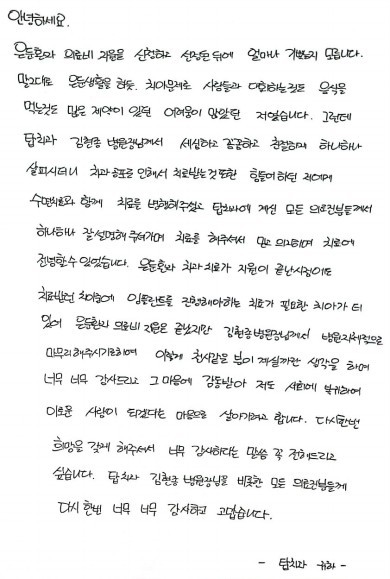 안녕하세요.
은둔환자 의료비 지원을 신청하고 선정된 뒤에 얼마나 기뻤는지 모릅니다.
말그대로 은둔생활을 하듯, 치아문제로 사람들과 대화하는것도 음식을
먹는것도 많은 제약이 있던 어려움이 많았던 저였습니다. 그런데
탑치과 김현종 병원장님께서 세심하고 꼼꼼하고 친절하게 하나하나
살피시더니 치과 공포로 인해서 치료받는것 또한 힘들어 하던 저에게
수면치료와 함께 치료를 병행해주셨고 탑치과에 계신 모든 의료진분들께서
하나하나 잘 설명해 주셔가며 치료를 해주셔서 믿고 의지하며 치료에
전념할 수 있었습니다. 은둔환자 치과치료가 지원이 끝난시점에도
치료받던 치아중에 임플란트를 진행해야하는 치료가 필요한 치아가 더
있어 은둔환자 의료비 지원은 끝났지만 김현종병원장님께서 병원자체적으로
마무리해주시기로하여 이렇게 천사같은 분이 계실까란 생각을 하며
너무 너무 감사드리고 그 마음에 감동받아 저도 사회에 복귀하여
이로운 사람이 되겠다는 마음으로 살아가려고 합니다. 다시한번
희망을 갖게 해주셔서 너무 감사하다는 말씀 꼭 전해드리고
싶습니다. 탑치과 김현종 병원장님을 비롯한 모든 의료진분들께
다시 한번 너무 너무 감사하고 고맙습니다.
- 탑치과 귀하 -